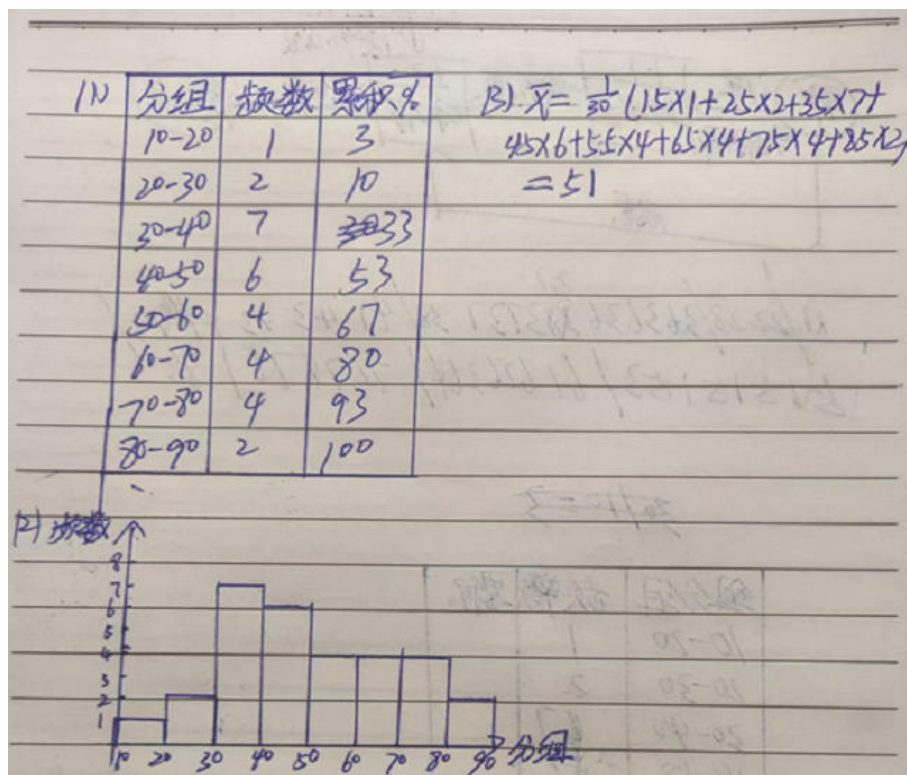 (1) 分组 频数 累积%
10-20 1 3
20-30 2 10
30-40 7 33
40-50 6 53
50-60 4 67
60-70 4 80
70-80 4 93
80-90 2 100
(3). x̄ = 1/30 (15×1+25×2+35×7+
45×6+55×4+65×4+75×4+85×2)
=51
(2) 频数
8
7
6
5
4
3
2
1
10 20 30 40 50 60 70 80 90 分组